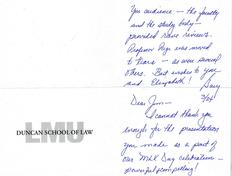 Dear Jim —
I cannot thank you
enough for the presentation
you made as a part of
our MLK Day celebration —
powerful & compelling!
Your audience — the faculty
and the study body —
provided rave reviews.
Professor was moved
to tears — as were several
others. Best wishes to you
and Elizabeth!
Gary
LMU
DUNCAN SCHOOL OF LAW